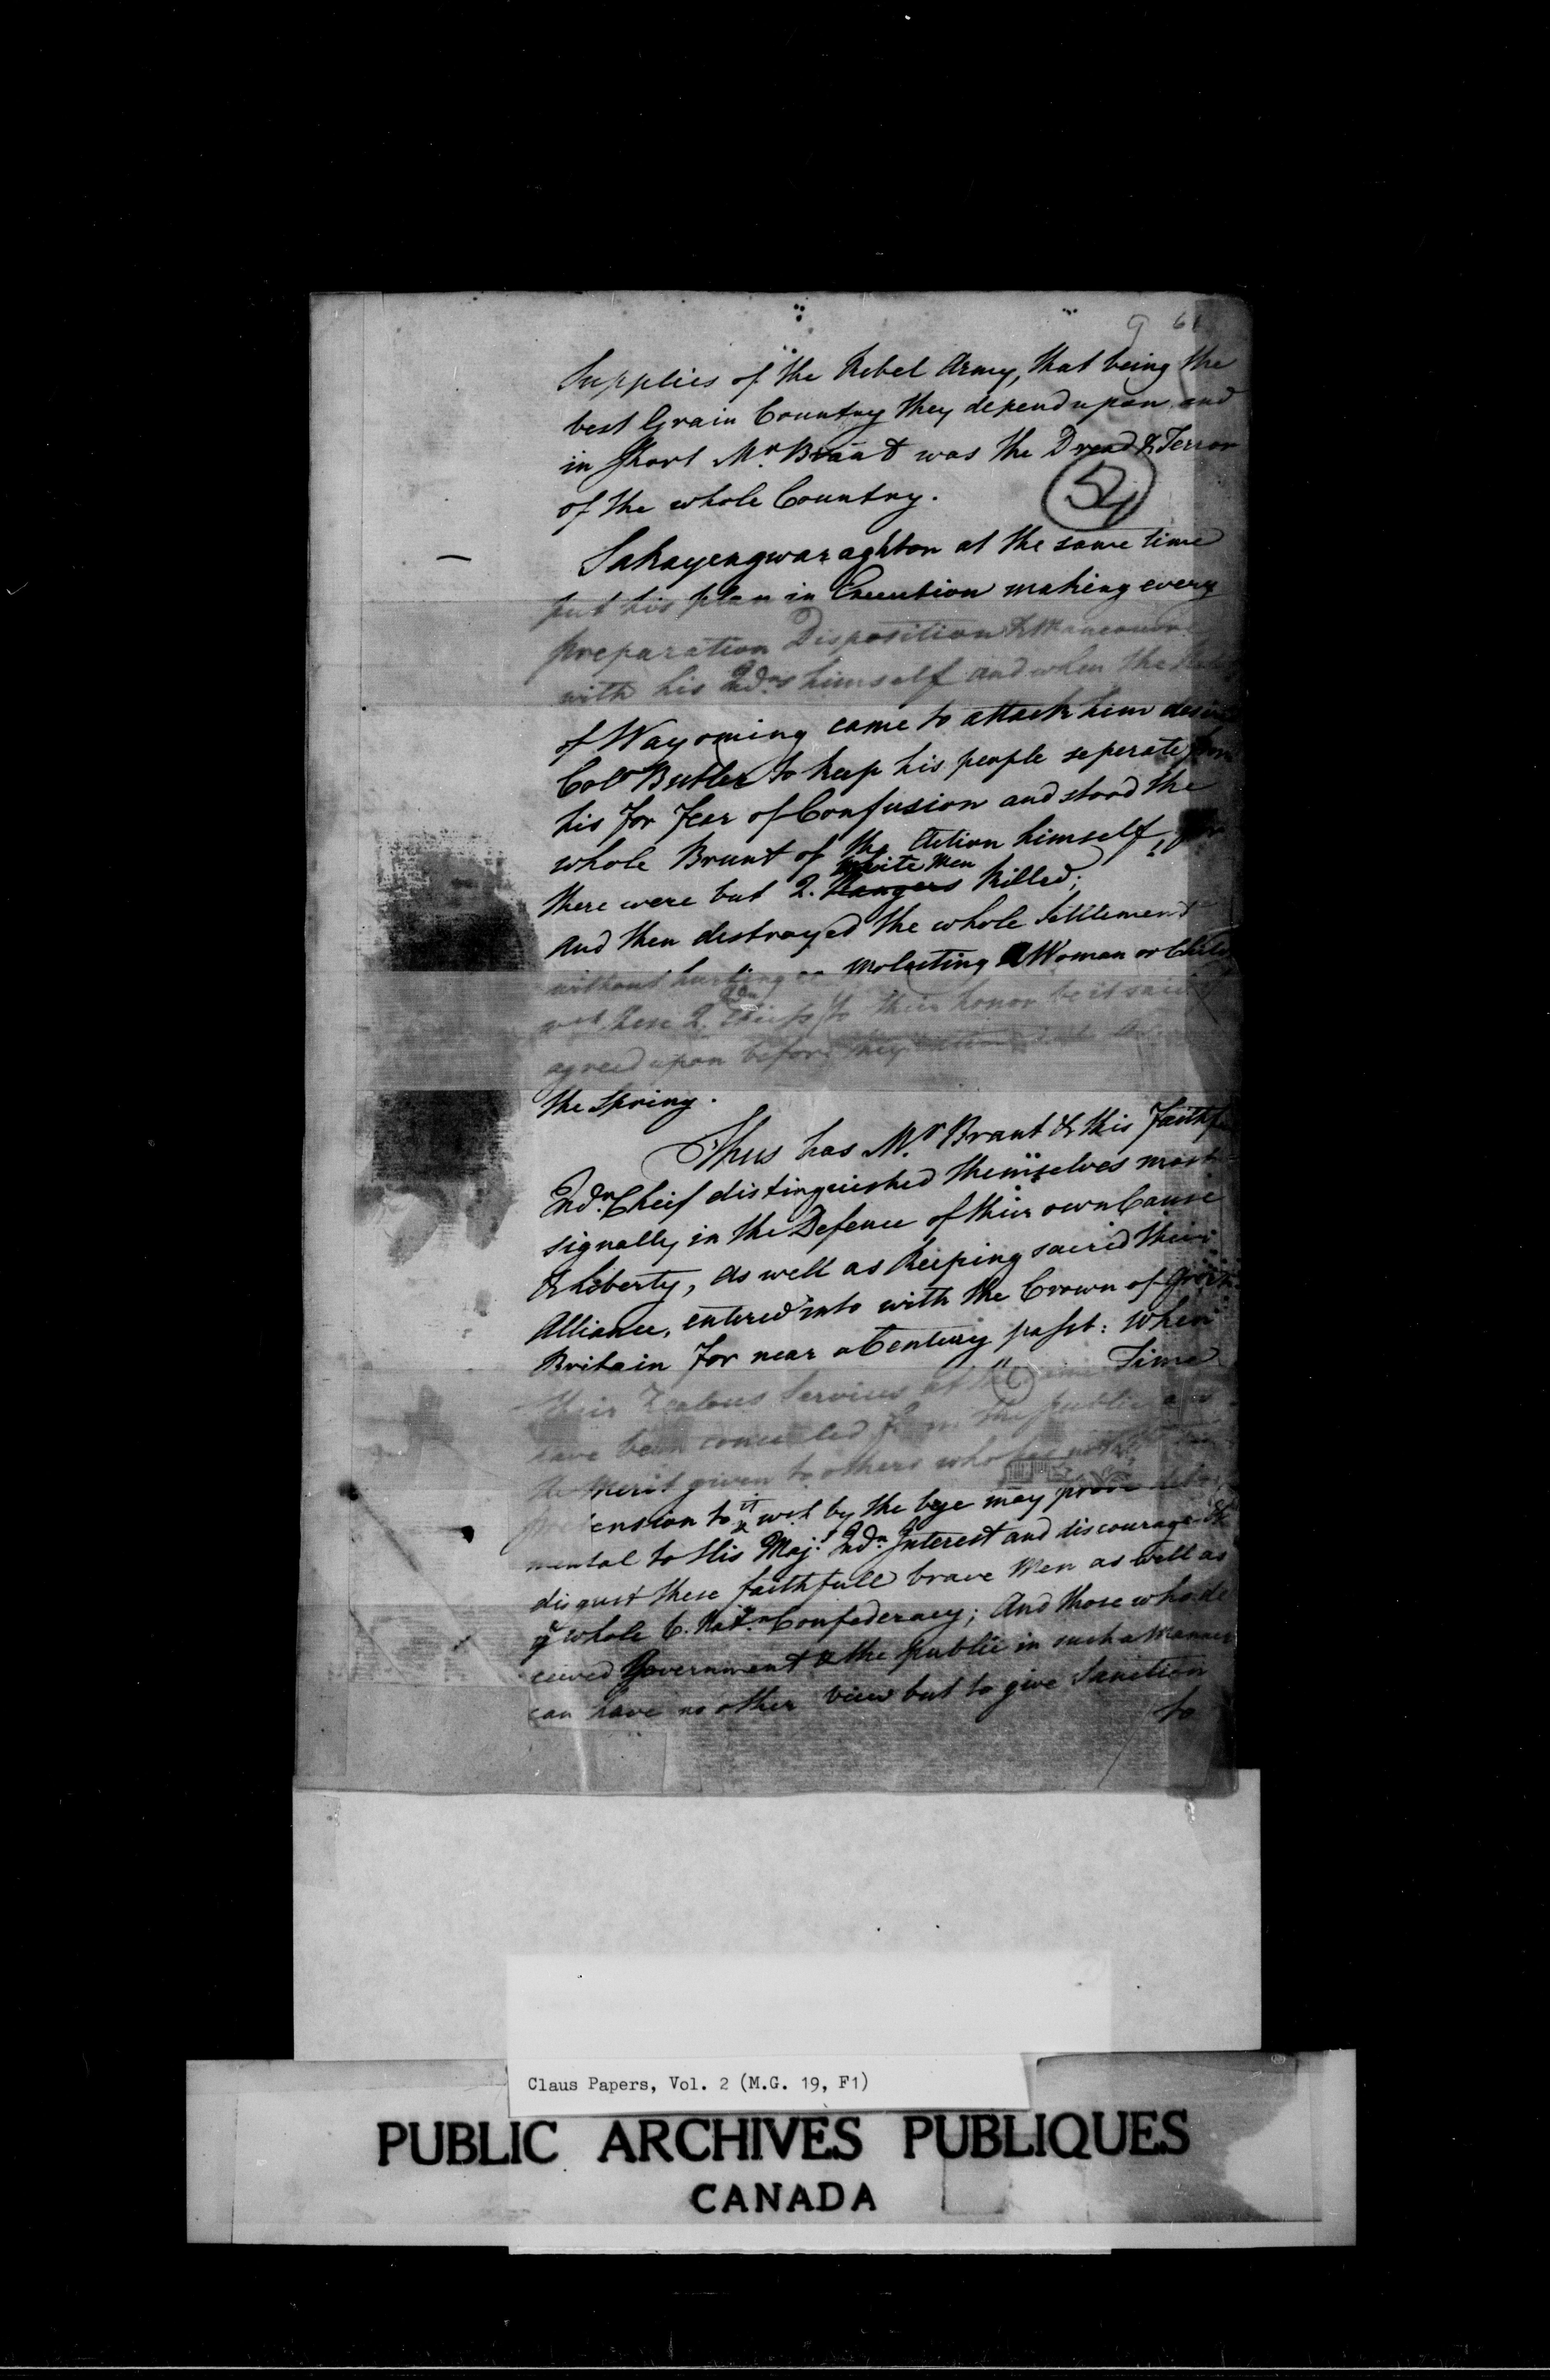 9 61
Supplies of the Rebel Army, that being the
best Grain Country they depend upon and
in short Mr. Brant was the Dread & Terror
of the whole Country.
54
Sakayengwaraghton at the same time
put his plan in Execution making every
preparation Disposition & Manoeuvre
with his Indns himself and when the Rebels
of Wayoming came to attack him desir
Colo Butler to keep his people seperate from
his for fear of Confusion and stood the
whole Brunt of the Action himself, for
white Men
there were but 2. Rangers killed;
and then destroyed the whole Settlement
without hurting or molesting a Woman or Child
Indn
wch these 2. Chiefs to their honor be it said
agreed upon before they
the Spring.
Thus has Mr. Brant & this faithf
Indn. Cheif distinguished themselves most
signally in the Defence of their own Cause
& Liberty, as well as keeping sacred their
Alliance, entered into with the Crown of Great
Britain for near a Century past: when
their Zealous Services at the same Time
have been concealed from the public and
the Merit given to others who
it
pretension to wch by the bye may prove detri
mental to His Maj.s Indn Interest and discourage &
disgust these faithfull brave Men as well as
ye whole 6. Natn Confederacy; And those who de
ceived Government & the public in such a Manner
can have no other view but to give Sanction
to
Claus Papers, Vol. 2 (M.G. 19, F1)
PUBLIC ARCHIVES PUBLIQUES
CANADA